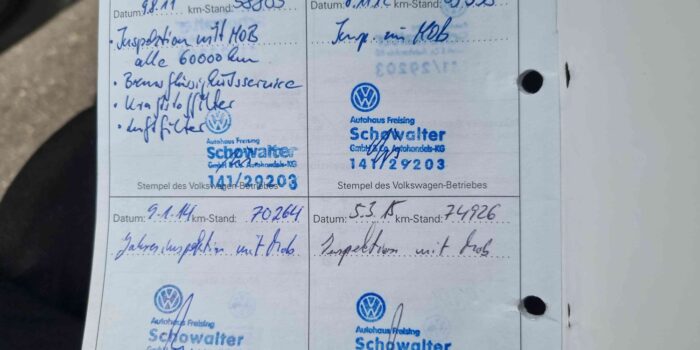 Datum: 9.8.11 km-Stand: 58805
• Inspektion mit MOB
alle 60000 km
• Bremsflüssigkeitsservice
• Kraftstofffilter
• Luftfilter
Autohaus Freising
Schowalter
GmbH & Co. Autohandels-KG
141/29203
Stempel des Volkswagen-Betriebes
Datum: km-Stand:
Insp. mit MOB
Autohaus Freising
Schowalter
GmbH & Co. Autohandels-KG
141/29203
Stempel des Volkswagen-Betriebes
Datum: 9.1.14 km-Stand: 70264
Jahresinspektion mit Mob
Autohaus Freising
Schowalter
Datum: 5.3.15 km-Stand: 74926
Inspektion mit Mob
Autohaus Freising
Schowalter